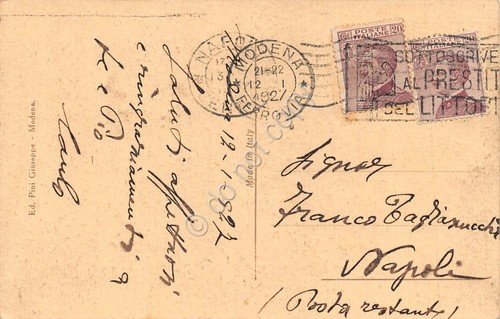 Modena 12-1-927
Saluti affettuosi
e ringraziamenti a
Lei e Pio
Carlo
Ed. Pini Giuseppe - Modena.
Made in Italy
NAPOLI
MODENA
21-22
12 . I
1927
FERROVIA
SOTTOSCRIVETE
AL PRESTITO
DEL LITTORIO
POSTE
ITALIANE
20
Signor
Franco Tagliazucchi
Napoli
(Posta restante)
do not copy